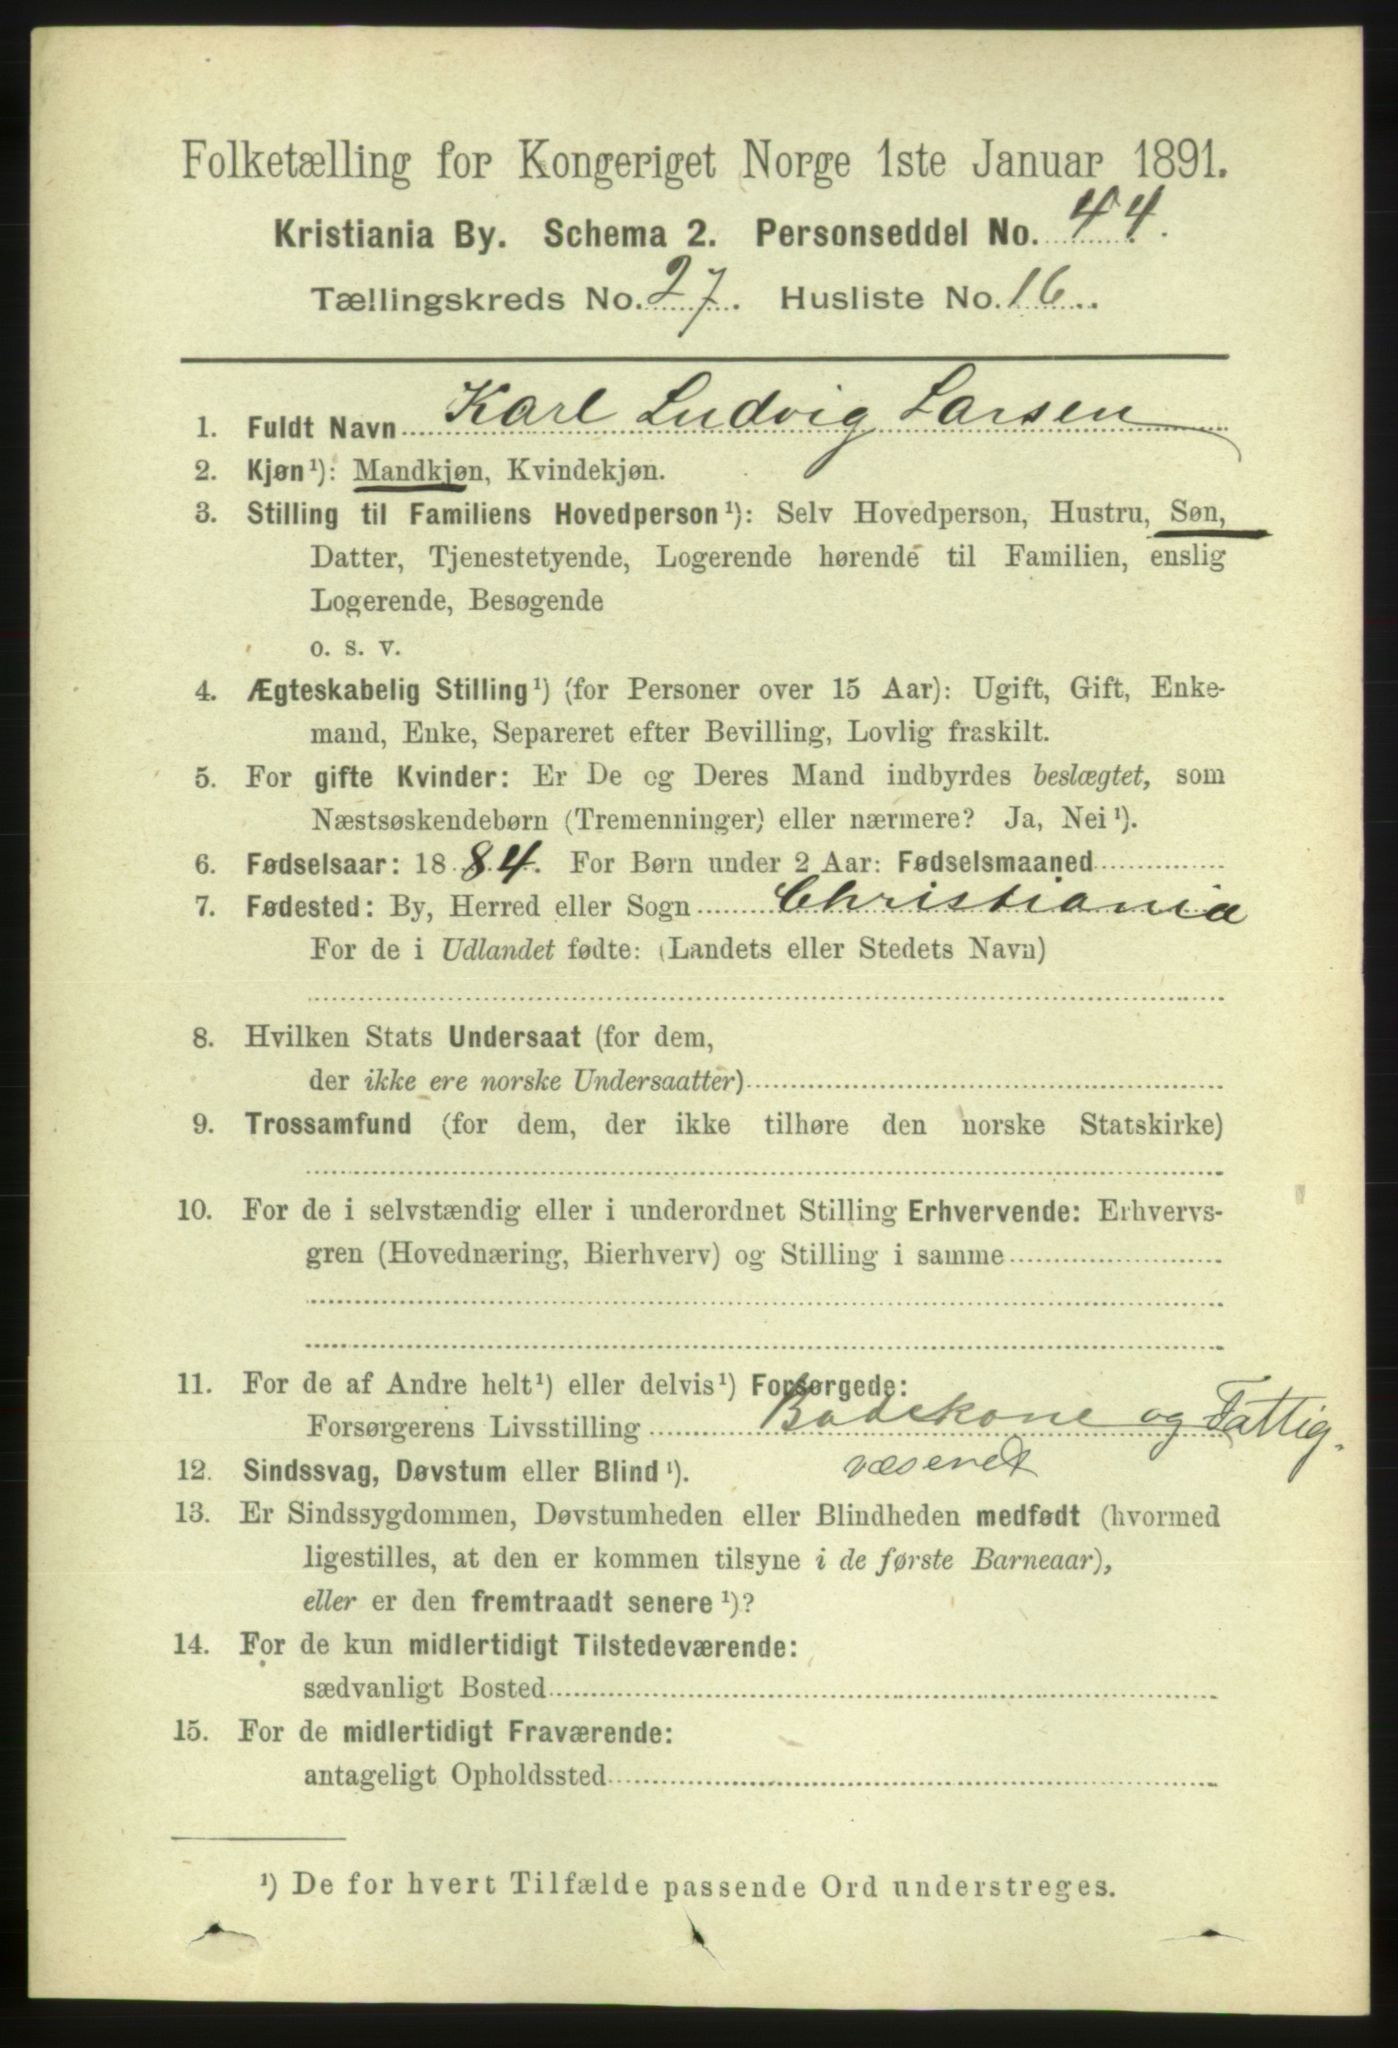 Folketælling for Kongeriget Norge 1ste Januar 1891.
Kristiania By. Schema 2. Personseddel No. 44.
Tællingskreds No. 27. Husliste No. 16.
1. Fuldt Navn Karl Ludvig Larsen
2. Kjøn¹): Mandkjøn, Kvindekjøn.
3. Stilling til Familiens Hovedperson¹): Selv Hovedperson, Hustru, Søn,
Datter, Tjenestetyende, Logerende hørende til Familien, enslig
Logerende, Besøgende
o. s. v.
4. Ægteskabelig Stilling¹) (for Personer over 15 Aar): Ugift, Gift, Enke-
mand, Enke, Separeret efter Bevilling, Lovlig fraskilt.
5. For gifte Kvinder: Er De og Deres Mand indbyrdes beslægtet, som
Næstsøskendebørn (Tremenninger) eller nærmere? Ja, Nei¹).
6. Fødselsaar: 1884. For Børn under 2 Aar: Fødselsmaaned
7. Fødested: By, Herred eller Sogn Christiania
For de i Udlandet fødte: (Landets eller Stedets Navn)
8. Hvilken Stats Undersaat (for dem,
der ikke ere norske Undersaatter)
9. Trossamfund (for dem, der ikke tilhøre den norske Statskirke)
10. For de i selvstændig eller i underordnet Stilling Erhvervende: Erhvervs-
gren (Hovednæring, Bierhverv) og Stilling i samme
11. For de af Andre helt¹) eller delvis¹) Forsørgede:
Forsørgerens Livsstilling Badekone og Fattig-
væsenet
12. Sindssvag, Døvstum eller Blind¹).
13. Er Sindssygdommen, Døvstumheden eller Blindheden medfødt (hvormed
ligestilles, at den er kommen tilsyne i de første Barneaar),
eller er den fremtraadt senere¹)?
14. For de kun midlertidigt Tilstedeværende:
sædvanligt Bosted
15. For de midlertidigt Fraværende:
antageligt Opholdssted
¹) De for hvert Tilfælde passende Ord understreges.